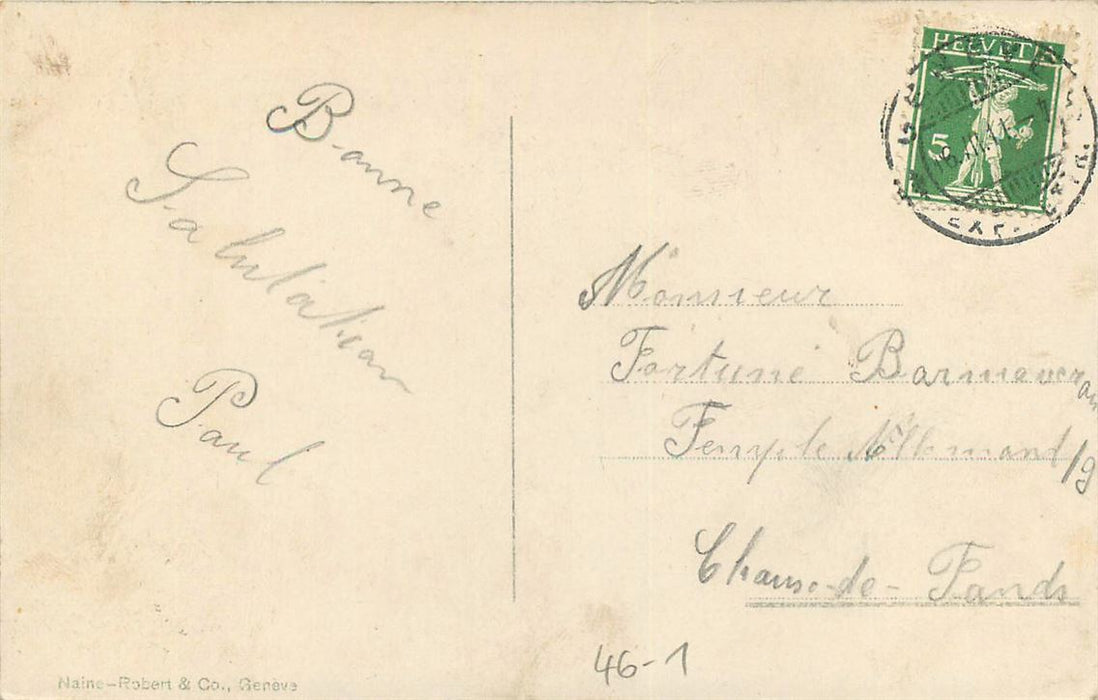 Bonne
Salutation
Paul
HELVETIA
5
GENÈVE
EXP. LETTR.
Monsieur
Fortuné Barmaveran
Temple Allemand 19
Chaux-de-Fonds
46-1
Naine-Robert & Co., Genève